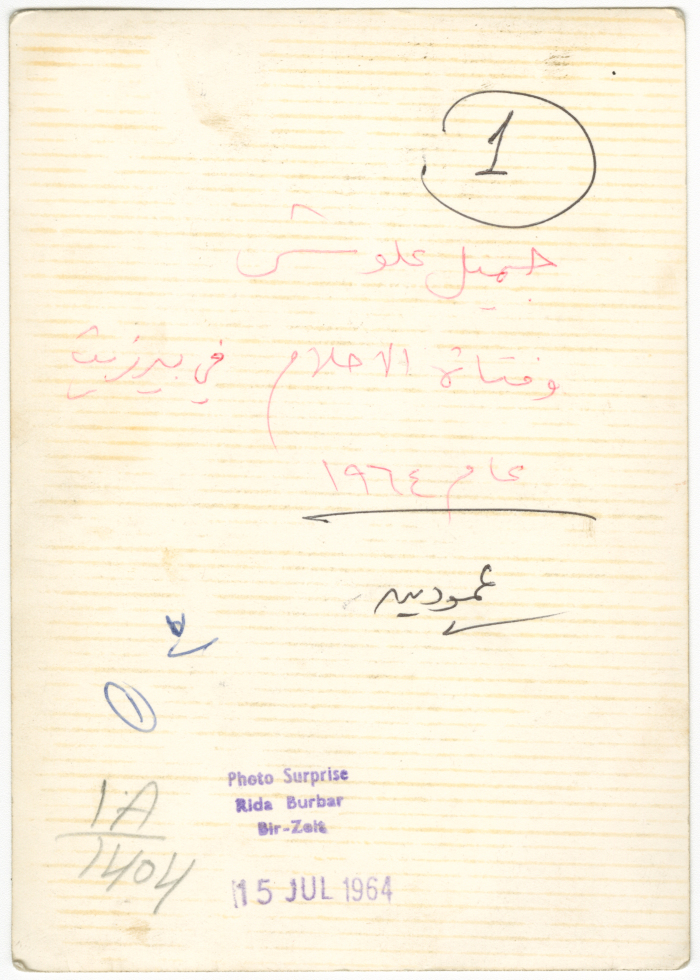 1
جميل علوش
وفتاة الاحلام في بيرزيت
عام ١٩٦٤
عموديه
1
1A
1404
Photo Surprise
Rida Burbar
Bir-Zeit
15 JUL 1964